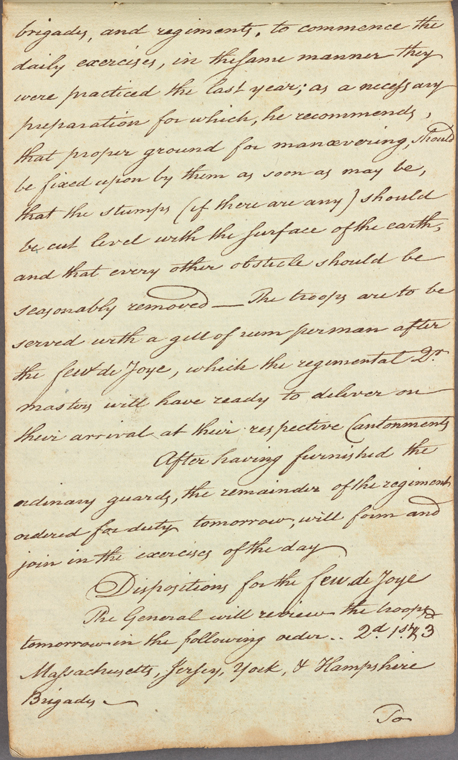 brigades, and regiments, to commence the
daily exercises, in the same manner they
were practiced the last year; as a necessary
preparation for which, he recommends,
that proper ground for manœvering, should
be fixed upon by them as soon as may be,
that the stumps (if there are any) should
be cut level with the surface of the earth,
and that every other obsticle should be
seasonably removed — The troops are to be
served with a gill of rum per man after
the few de Joye, which the regimental Qr.
masters will have ready to deliver on
their arrival at their respective Cantonments
After having furnished the
ordinary guards, the remainder of the regiment
ordered for duty tomorrow, will form and
join in the exercises of the day
Dispositions for the few de Joye
The General will review the troops
tomorrow in the following order.. 2d 1st & 3
Massachusetts, Jersey, York, & Hampshire
Brigades —
To